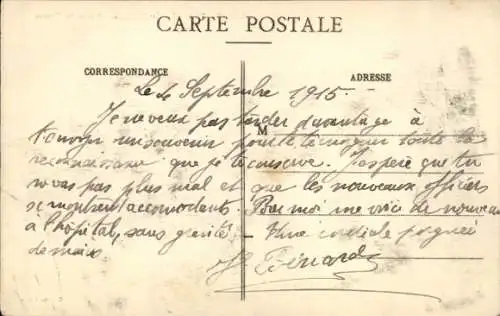 CARTE POSTALE
CORRESPONDANCE
ADRESSE
Le 4 Septembre 1915.
Je ne veux pas tarder davantage à
M
t'envoyer un souvenir pour te témoigner toute la
reconnaissance que je te conserve. J'espère que tu
vas pas plus mal et que les nouveaux officiers
se montrent accomodants. Pour moi me voici de nouveau
à l'hôpital, sans gravité. Une cordiale poignée
de mains.
Bénard